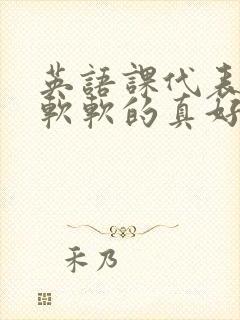 英語課代表
軟軟的真好
禾乃